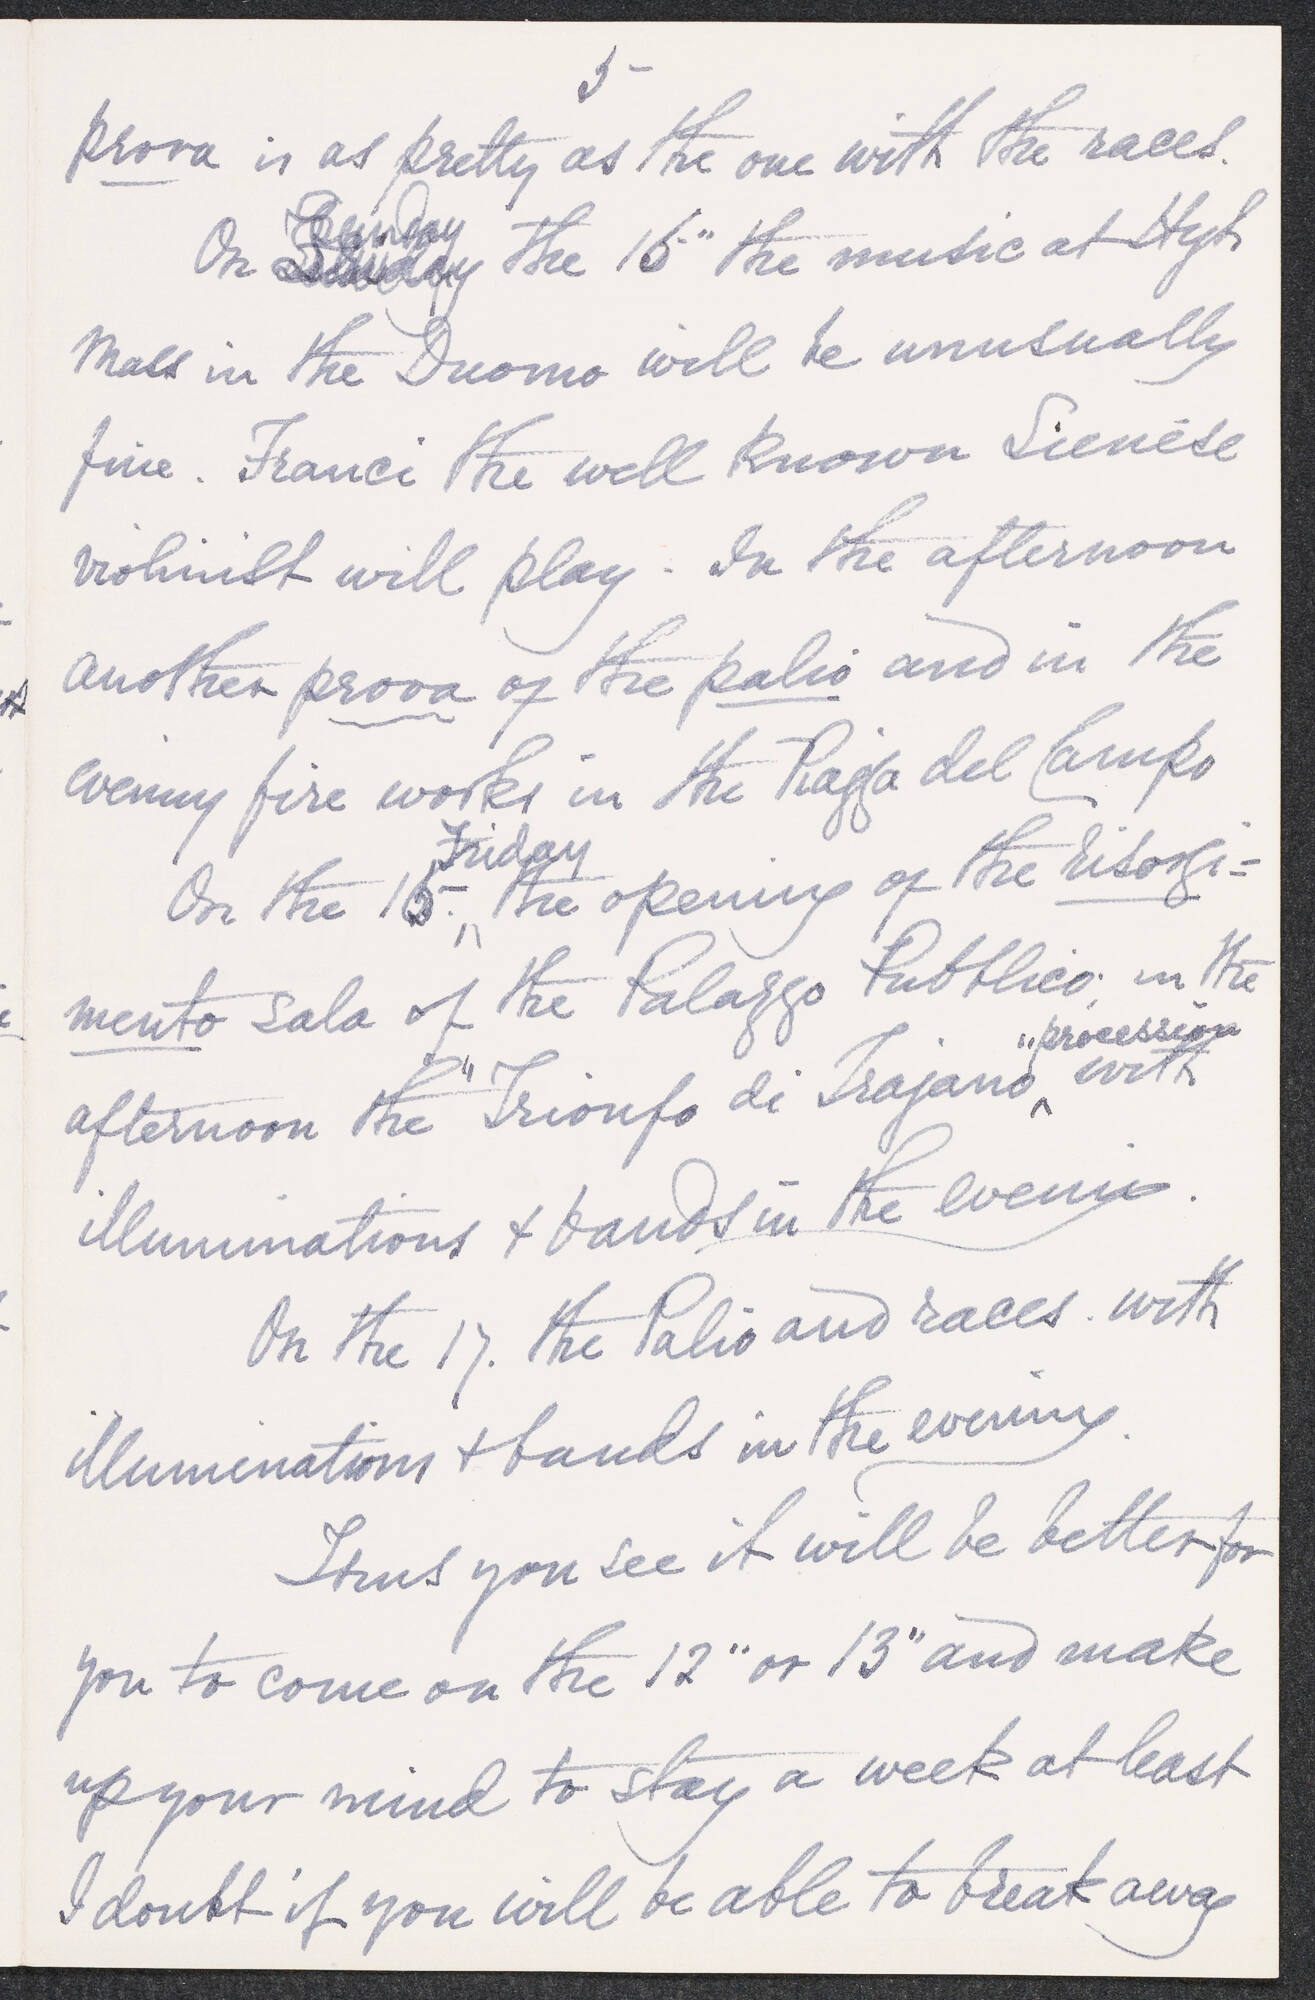 5-
prova is as pretty as the one with the races.
On Sunday the 15" the music at High
Mass in the Duomo will be unusually
fine. Franci the well known Sienese
violinist will play. In the afternoon
another prova of the palio and in the
evening fire works in the Piazza del Campo
Friday
On the 16. the opening of the Risorgi-
mento sala of the Palazzo Pubblico; in the
procession
afternoon the "Trionfo di Trajano" with
illuminations & bands in the evening.
On the 17. the Palio and races. with
illuminations & bands in the evening.
Thus you see it will be better for
you to come on the 12" or 13" and make
up your mind to stay a week at least
I doubt if you will be able to break away